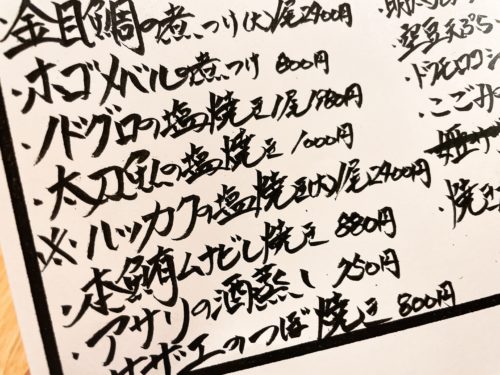 金目鯛の煮つけ(大)1尾2400円
・ホゴメバルの煮つけ 800円
・ノドグロの塩焼き1尾1780円
・太刀魚の塩焼き 1000円
※・ハッカクの塩焼き(大)1尾2400円
・本鮪ムナビレ焼き 880円
・アサリの酒蒸し 750円
・サザエのつぼ焼き 800円
空豆天ぷら
・こごみの
・焼き